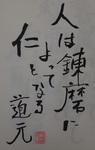 人は錬磨に
よって
仁となる
道元